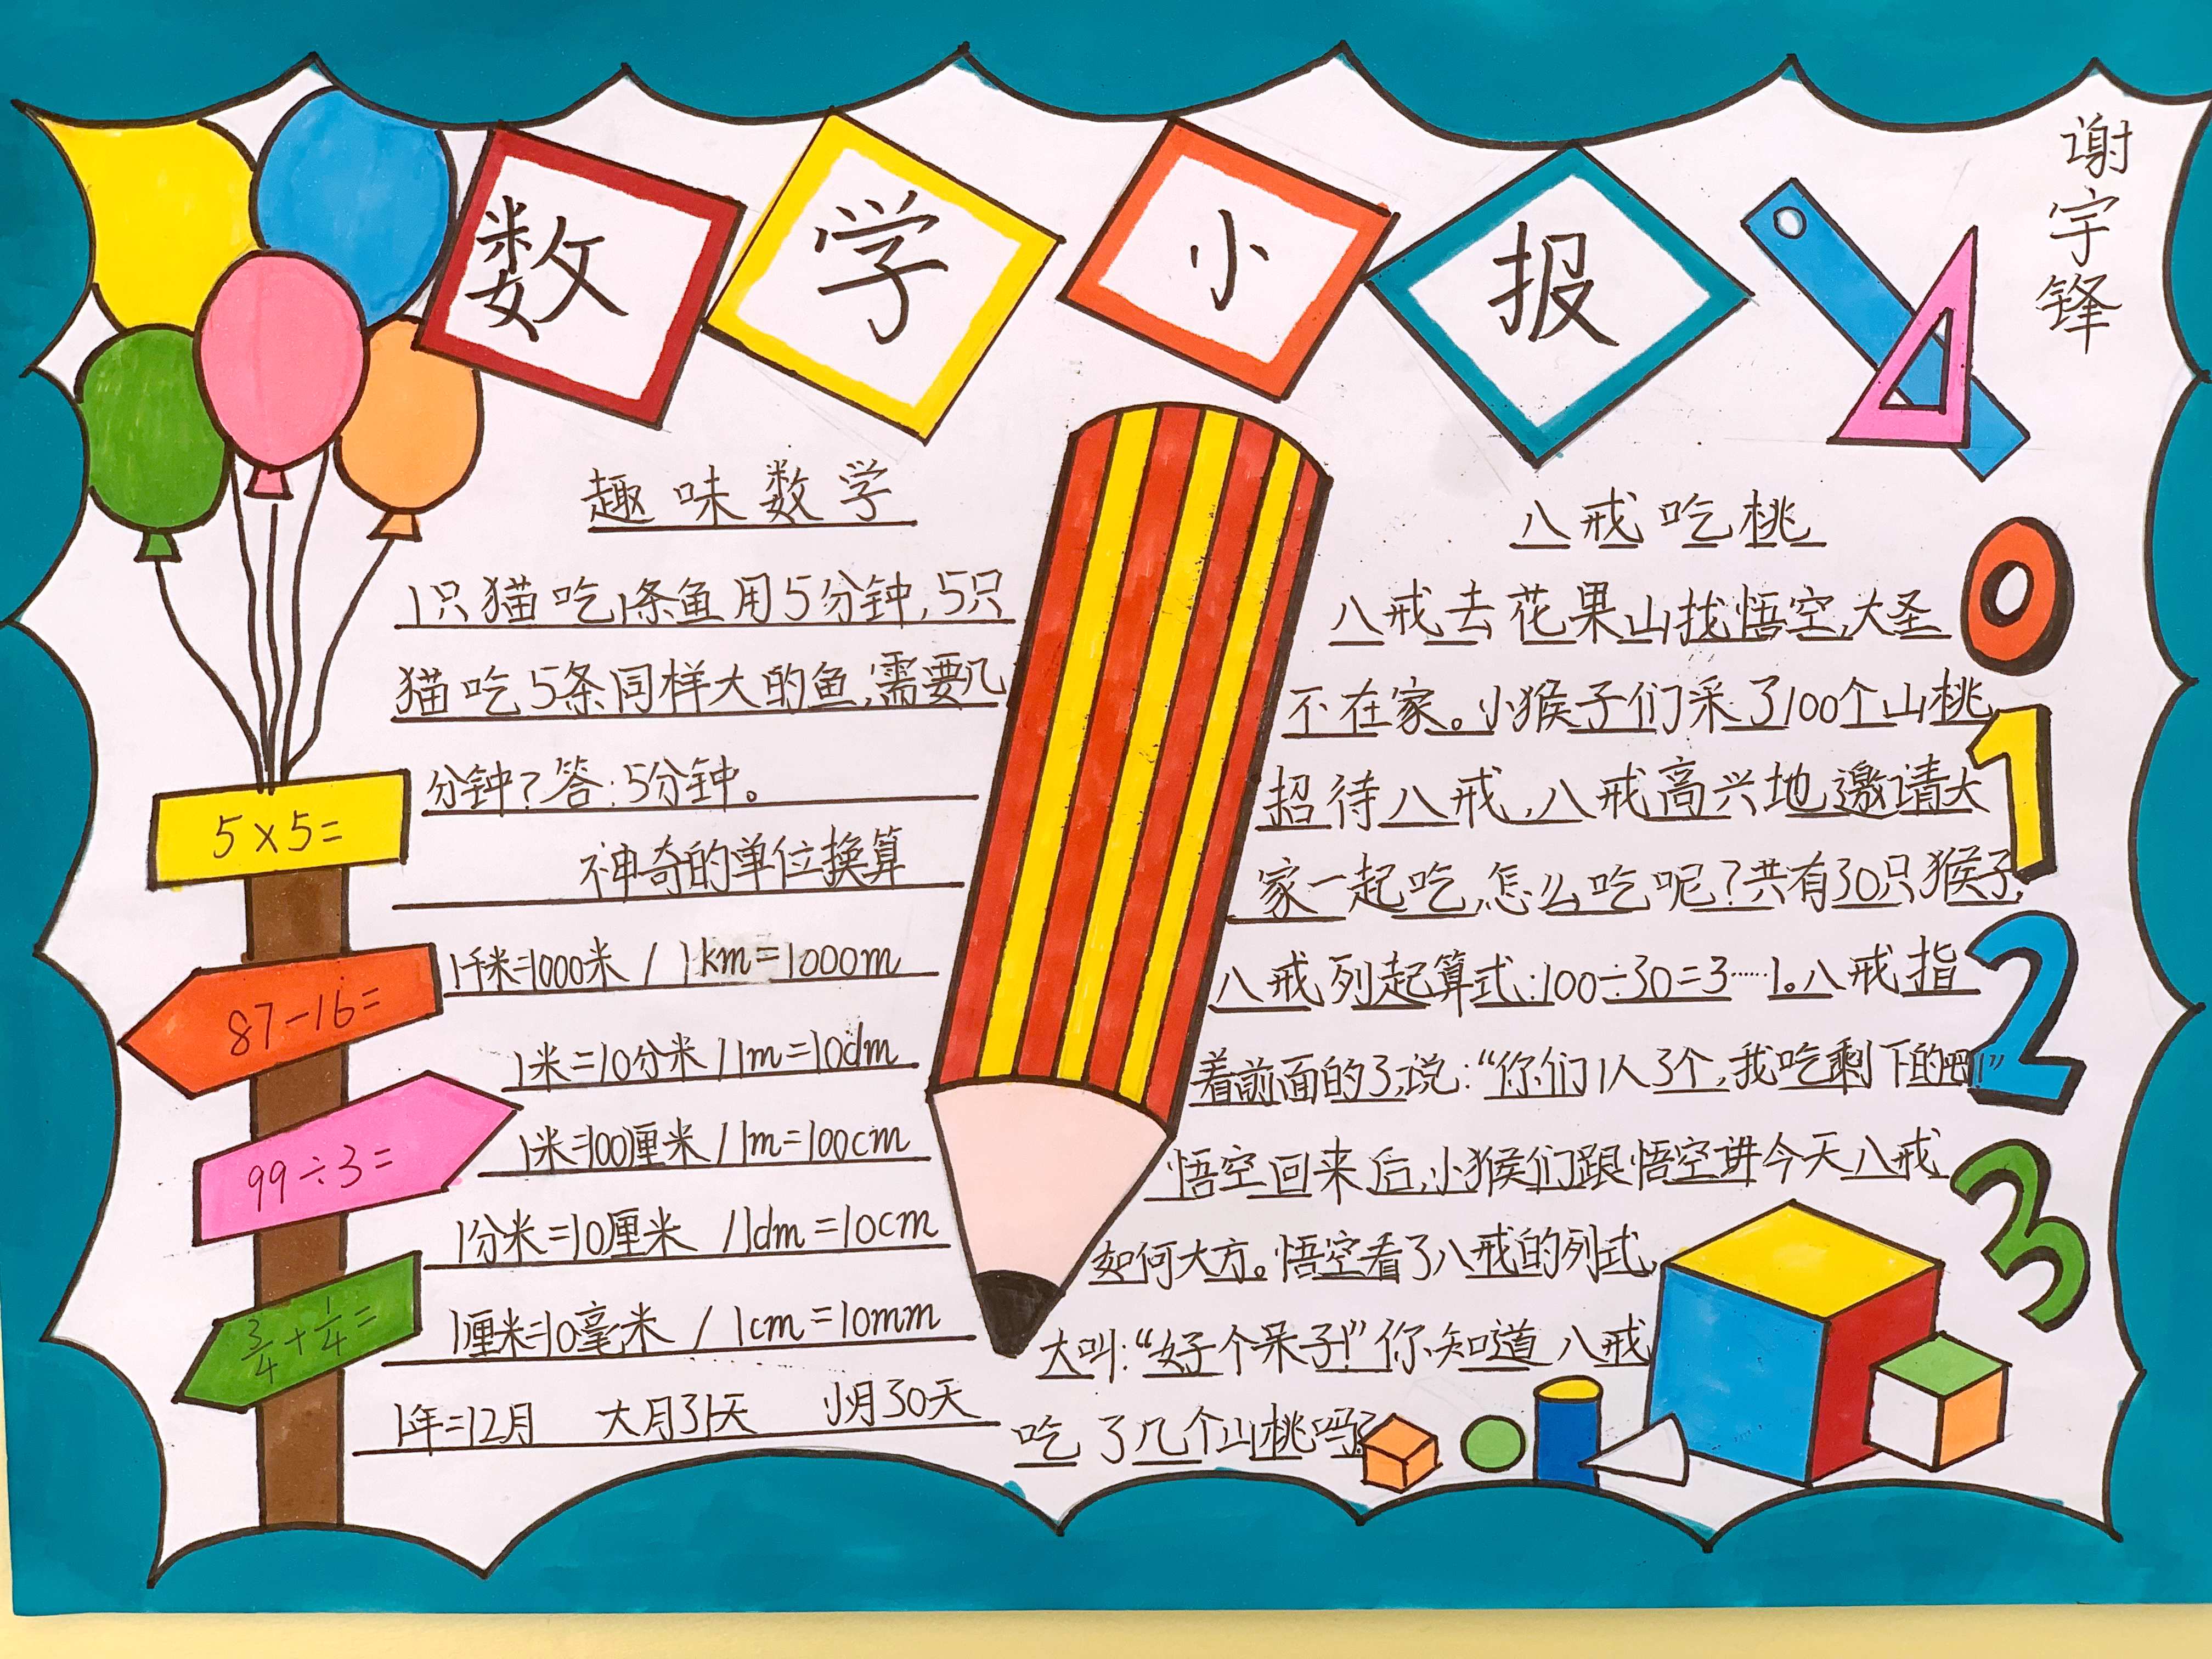 数学小报
谢宇锋
趣味数学
1只猫吃1条鱼用5分钟,5只
猫吃5条同样大的鱼,需要几
分钟?答:5分钟。
神奇的单位换算
1千米=1000米 / 1km=1000m
1米=10分米 / 1m=10dm
1米=100厘米 / 1m=100cm
1分米=10厘米 / 1dm=10cm
1厘米=10毫米 / 1cm=10mm
1年=12月 大月31天 小月30天
5×5=
87-16=
99÷3=
3/4+1/4=
八戒吃桃
八戒去花果山找悟空,大圣
不在家。小猴子们采了100个山桃,
招待八戒,八戒高兴地邀请大
家一起吃,怎么吃呢?共有30只猴子,
八戒列起算式:100÷30=3……1。八戒指
着前面的3,说:“你们1人3个,我吃剩下的吧!”
悟空回来后,小猴们跟悟空讲今天八戒
如何大方。悟空看了八戒的列式,
大叫:“好个呆子!”你知道八戒
吃了几个山桃吗?
0
1
2
3